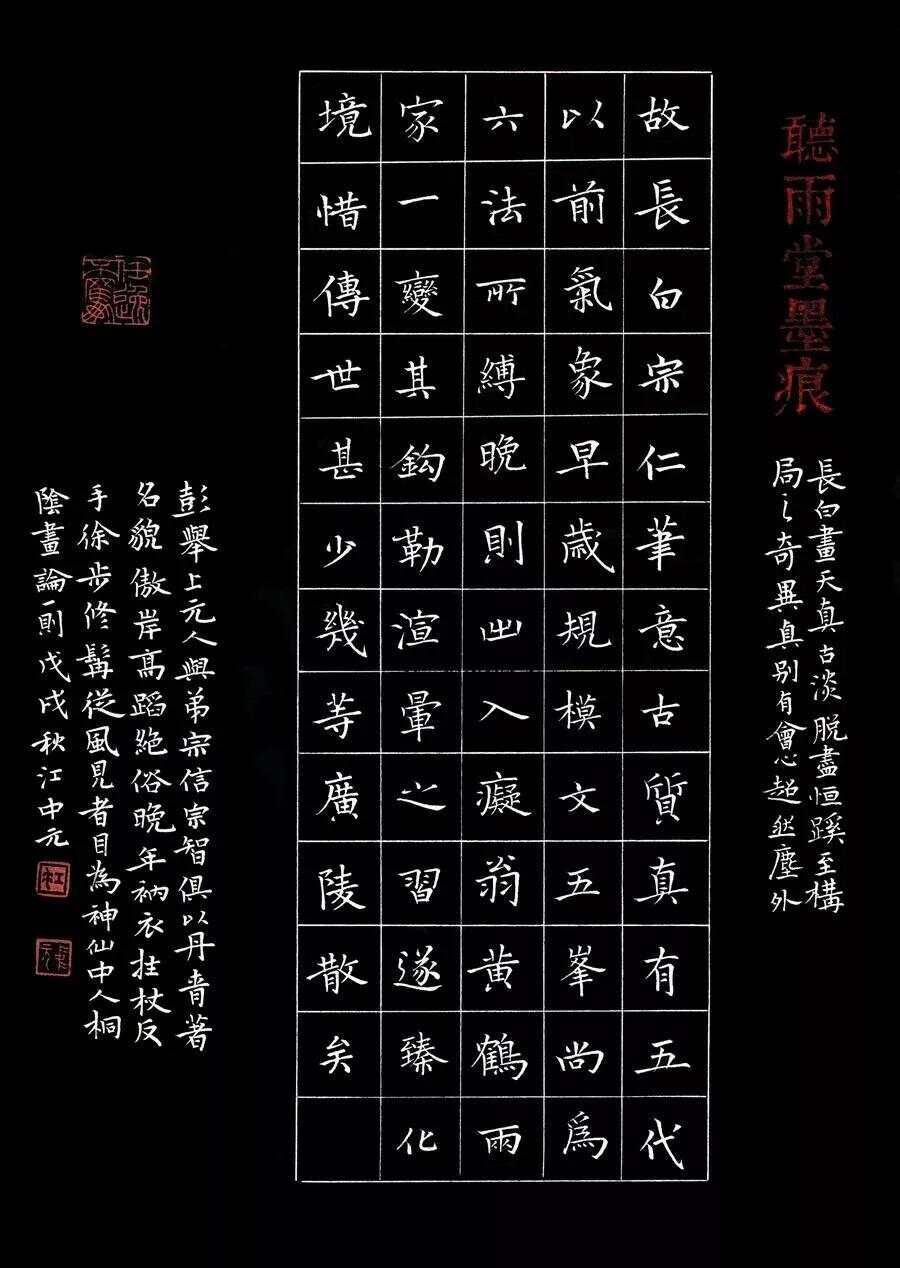 聽雨堂墨痕
長白畫天真古淡脫盡恒蹊至構
局之奇異真别有會心超然塵外
故長白宗仁筆意古質真有五代
以前氣象早歲規模文五峯尚為
六法所縛晚則出入癡翁黄鶴兩
家一變其鈎勒渲暈之習遂臻化
境惜傳世甚少幾等廣陵散矣
彭舉上元人與弟宗信宗智俱以丹青著
名貌傲岸高蹈絕俗晚年衲衣拄杖反
手徐步修髯從風見者目為神仙中人桐
陰畫論一則戊戌秋江中元